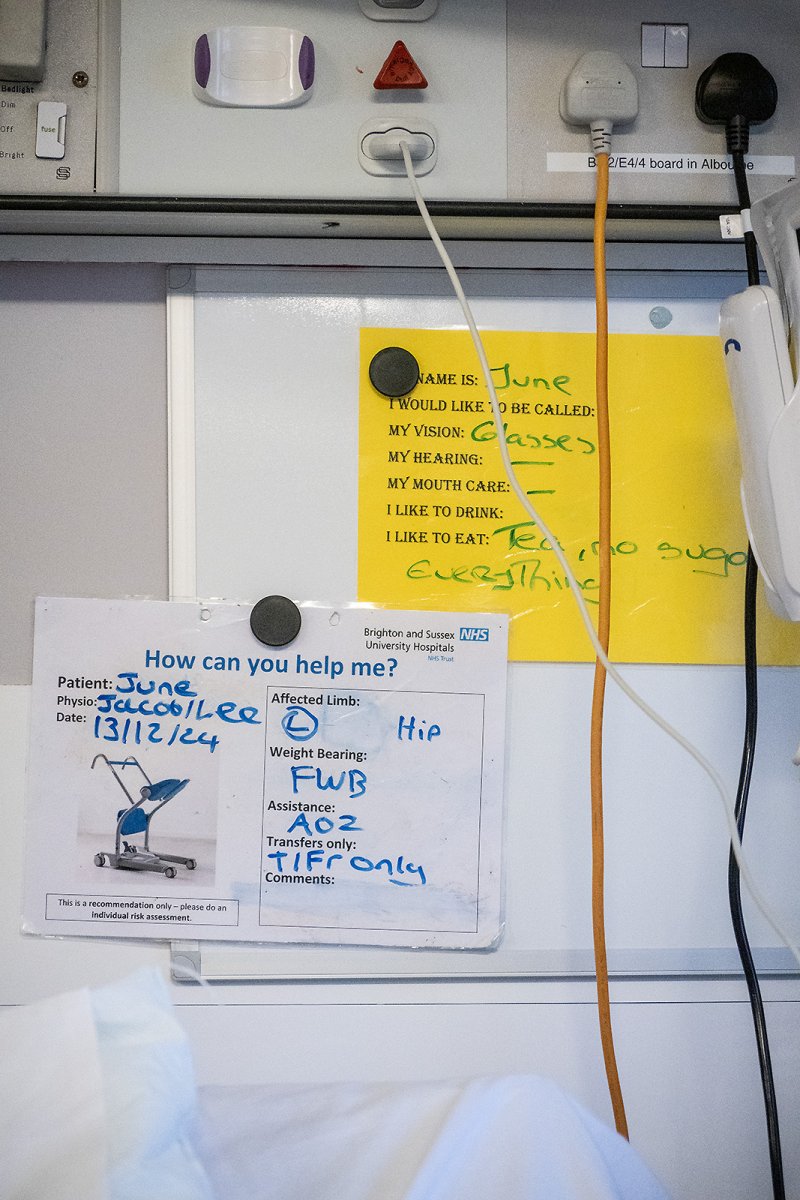 Bedlight
Dim
Off
Bright
fuse
board in Albourne
NAME IS: June
I WOULD LIKE TO BE CALLED:
MY VISION: Glasses
MY HEARING: —
MY MOUTH CARE: —
I LIKE TO DRINK:
I LIKE TO EAT: Tea, no
Everything
Brighton and Sussex NHS
University Hospitals
NHS Trust
How can you help me?
Patient: June
Physio: Jacob/Lee
Date: 13/12/24
Affected Limb:
L Hip
Weight Bearing:
FWB
Assistance:
AO2
Transfers only:
T/Fr only
Comments:
This is a recommendation only – please do an
individual risk assessment.